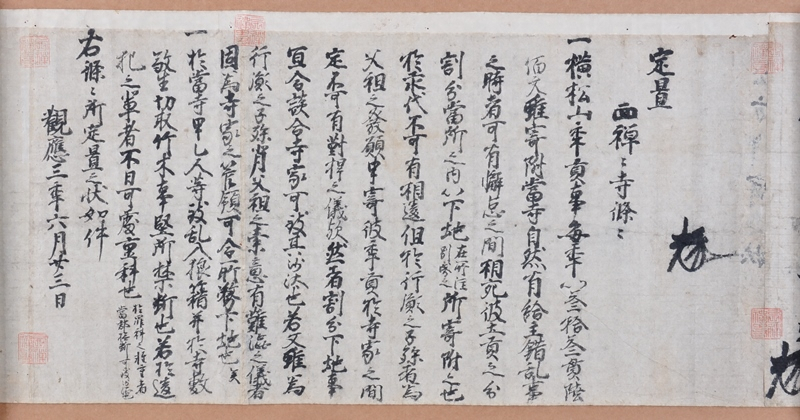 定置
西禅々寺條々
一横松山年貢事毎年以叁拾叁貫陸
佰文雖寄附當寺自然有給主錯乱事
之時者可有懈怠之間相宛彼土貢之分
割分當所之内以下地在所注別紙之所寄附之也
於末代不可有相違但於行衡之子孫者為
父祖之發願申寄彼年貢於寺家之間
定不可有對捍之儀歟然者割分下地事
宜令談合寺家可致其沙汰也若又雖為
行衡之子孫背父祖之素意有難澁之儀者
因為寺家之管領可令所務下地也矣
一於當寺甲乙人等致乱入狼藉并於寺敷
敢生切取竹木事堅所禁断也若於違
犯之輩者不日可處重科也
右條々所定置之状如件
觀應三年六月廿三日